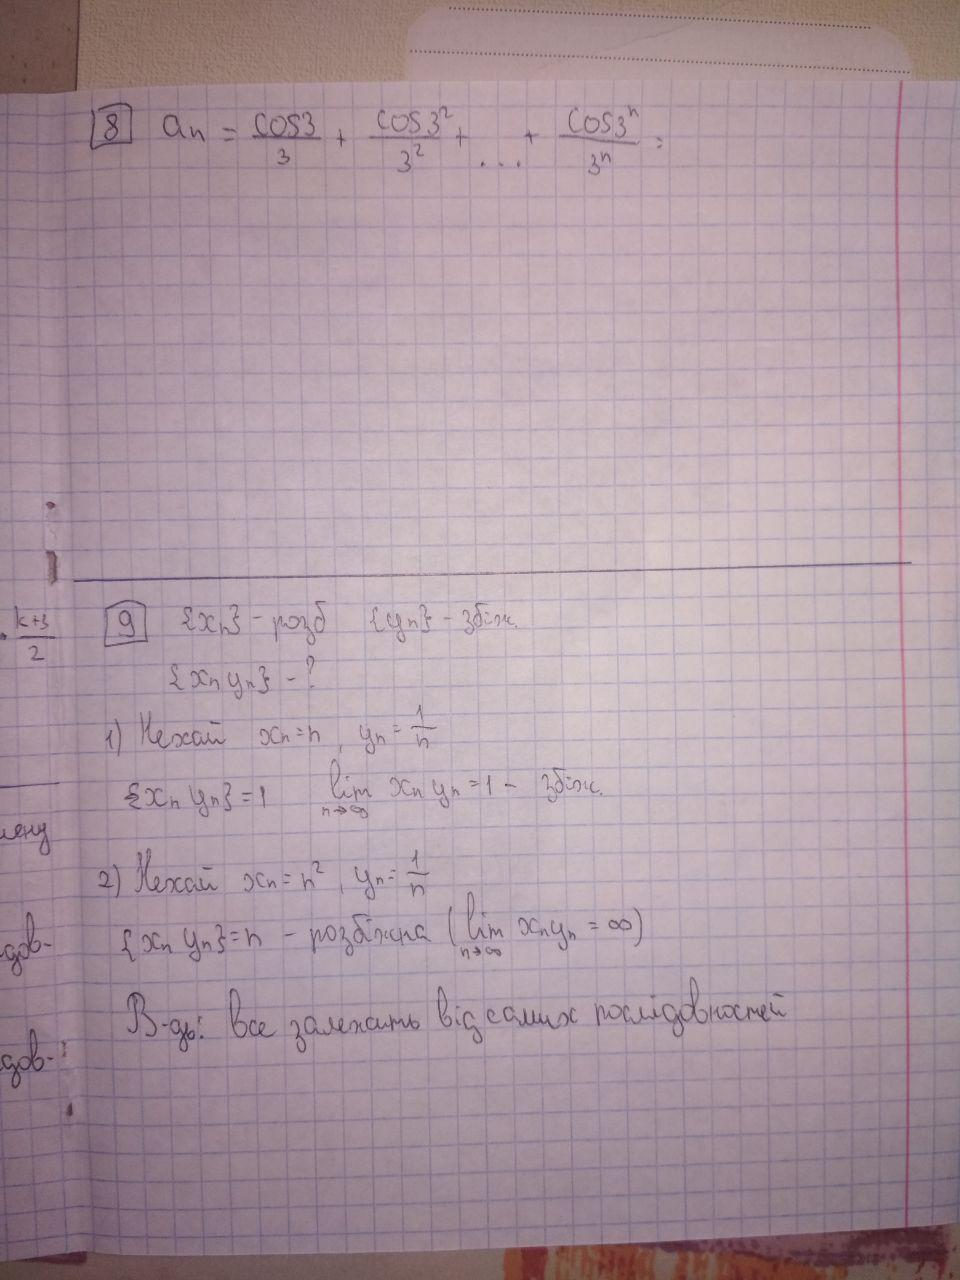 8 aₙ = cos3/3 + cos3²/3² + ... + cos3ⁿ/3ⁿ :
9 {xₙ} - розб {yₙ} - збіж.
{xₙ yₙ} - ?
1) Нехай xₙ = n, yₙ = 1/n
{xₙ yₙ} = 1 lim n→∞ xₙ yₙ = 1 - збіж.
2) Нехай xₙ = n², yₙ = 1/n
{xₙ yₙ} = n - розбіжна (lim n→∞ xₙyₙ = ∞)
В-дь: все залежить від самих послідовностей
k+3/2
лену
дов-
дов-